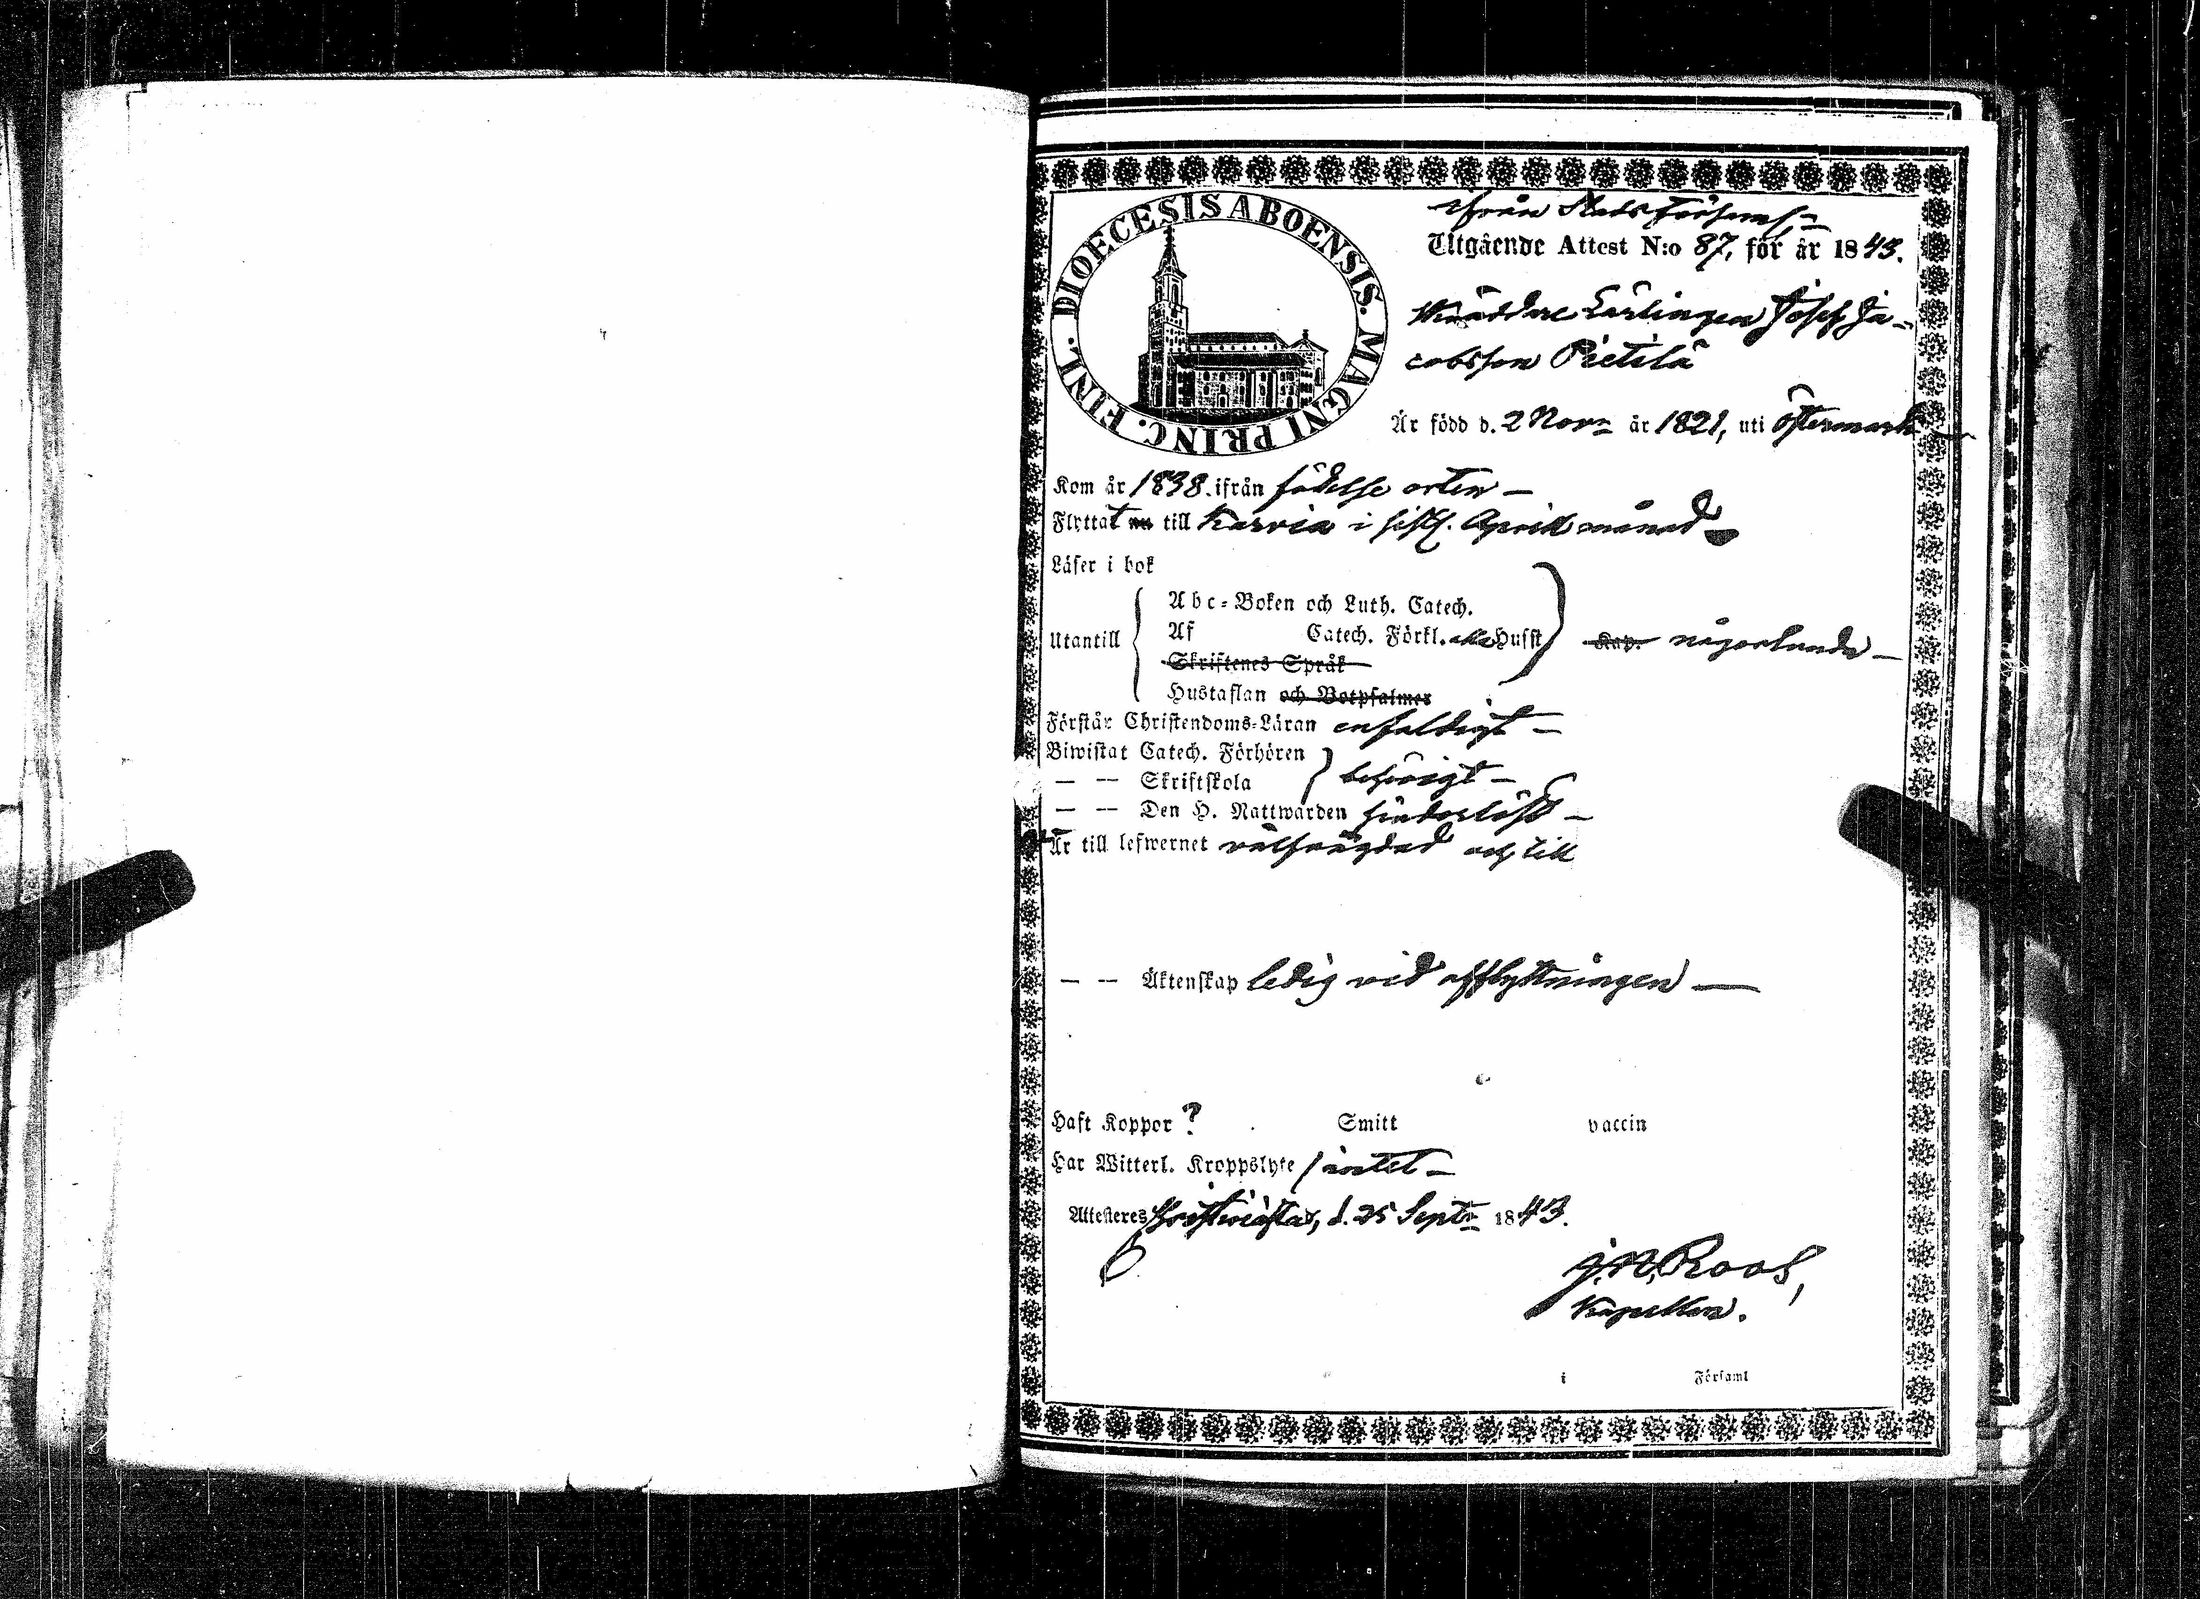 DIOECESIS ABOENSIS. MAGNI PRINC. FINL.
ifrån Stads Församl.
Utgående Attest N:o 87, för år 1843.
Skräddare Lärlingen Josef Ja-
cobsson Pietilä
Är född d. 2 Nov. år 1821, uti Östermark
Kom år 1838. ifrån födelse orten –
Flyttat till Karvia i sistl. April månad
Läser i bok
Utantill
Abc-Boken och Luth. Catech.
Af Catech. Förkl. Husst Kap. någorlunda –
Skriftenes Språk
Hustaflan och Botpsalmer
Förstår Christendoms-Läran enfaldigt –
Biwistat Catech. Förhören
— — Skriftskola behörigt –
— — Den H. Nattwarden hinderlöst –
Är till lefwernet välfrägdad och till
— — Äktenskap ledig vid afflyttningen —
Haft Koppor ? Smitt vaccin
Har Witterl. Kroppslyte / intet –
Attesteres Christinæstad, d. 25 Sept. 1843.
J. N. Roos,
Kapellan.
i Församl